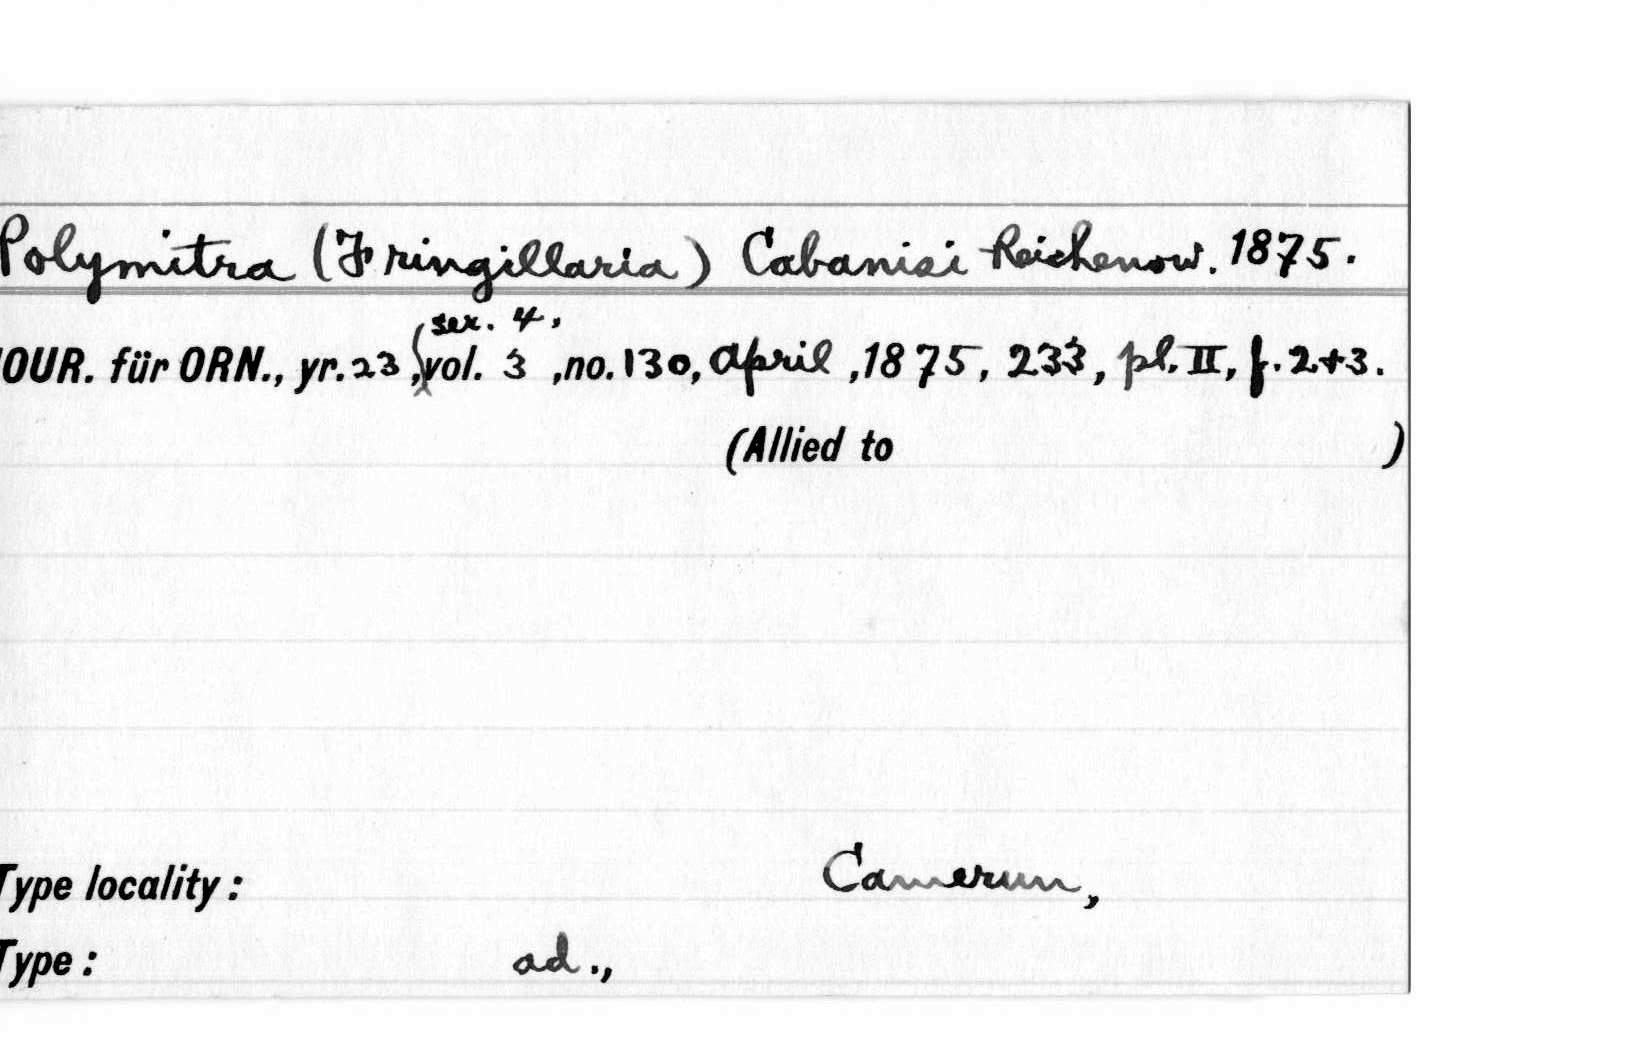 Polymitra (Fringillaria) Cabanisi Reichenow. 1875.
ser. 4,
JOUR. für ORN., yr. 23, vol. 3, no. 130, April, 1875, 233, pl. II, f. 2+3.
(Allied to )
Type locality: Camerun,
Type: ad.,